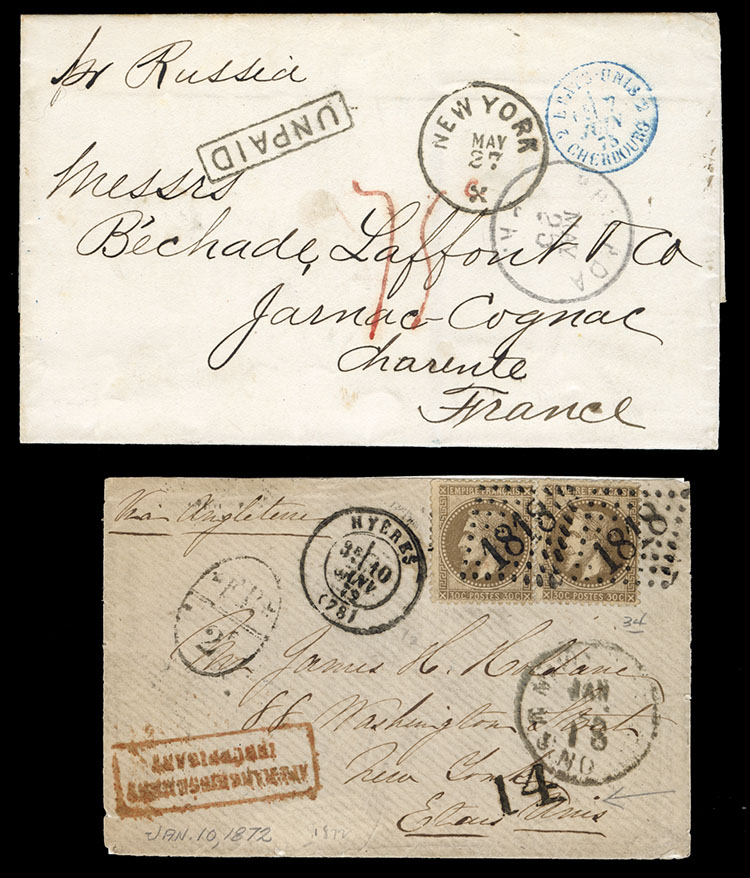 pr Russia
UNPAID
NEW YORK
MAY
27
ETATS-UNIS 2
2 CHERBOURG
7
JUIN
73
MAY
25
Messrs
Béchade, Laffont & Co
Jarnac-Cognac
Charente
France
Via Angleterre
HYERES
3E
10
JANV
(78)
EMPIRE FRANÇAIS
30C POSTES 30C
1818
EMPIRE FRANÇAIS
30C POSTES 30C
1818
34
P.D.
2
Mr James H. Holdane
88 Washington Street
New York
Etats Unis
JAN
18
14
AFFRANCHISSEMENT
INSUFFISANT
JAN. 10, 1872
1872